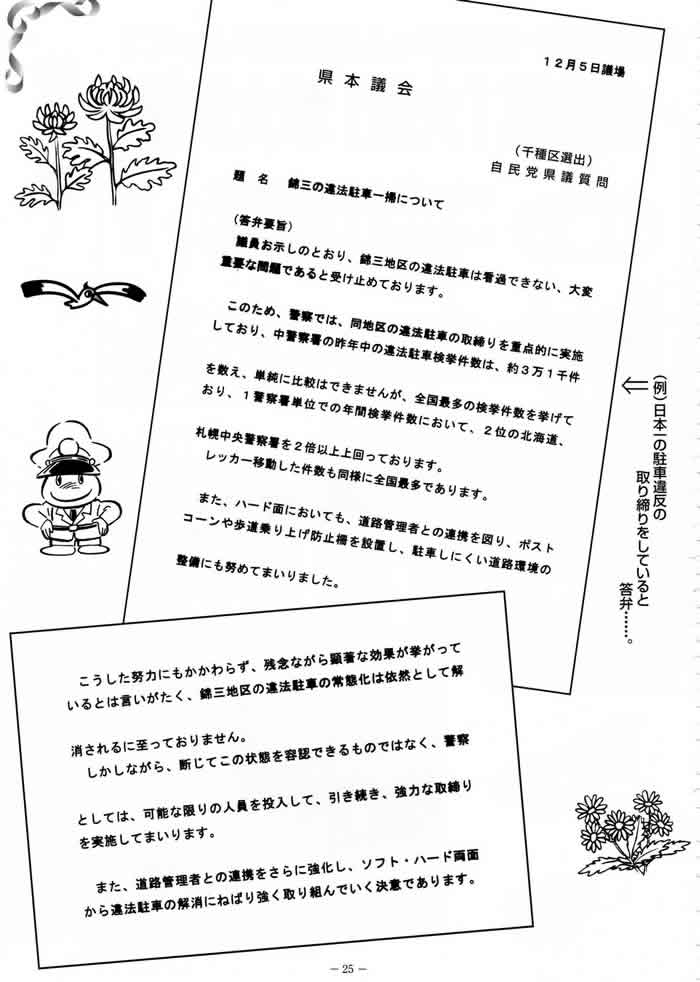 12月5日議場
県本議会
(千種区選出)
自民党県議質問
題　名　錦三の違法駐車一掃について
(答弁要旨)
議員お示しのとおり、錦三地区の違法駐車は看過できない、大変
重要な問題であると受け止めております。
このため、警察では、同地区の違法駐車の取締りを重点的に実施
しており、中警察署の昨年中の違法駐車検挙件数は、約3万1千件
を数え、単純に比較はできませんが、全国最多の検挙件数を挙げて
おり、1警察署単位での年間検挙件数において、2位の北海道、
札幌中央警察署を2倍以上上回っております。
レッカー移動した件数も同様に全国最多であります。
また、ハード面においても、道路管理者との連携を図り、ポスト
コーンや歩道乗り上げ防止柵を設置し、駐車しにくい道路環境の
整備にも努めてまいりました。
(例)日本一の駐車違反の
取り締りをしていると
答弁……。
こうした努力にもかかわらず、残念ながら顕著な効果が挙がって
いるとは言いがたく、錦三地区の違法駐車の常態化は依然として解
消されるに至っておりません。
しかしながら、断じてこの状態を容認できるものではなく、警察
としては、可能な限りの人員を投入して、引き続き、強力な取締り
を実施してまいります。
また、道路管理者との連携をさらに強化し、ソフト・ハード両面
から違法駐車の解消にねばり強く取り組んでいく決意であります。
— 25 —